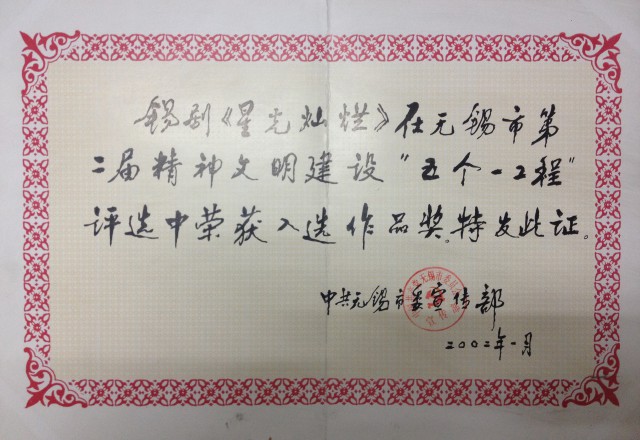 锡剧《星光灿烂》在无锡市第
二届精神文明建设“五个一工程”
评选中荣获入选作品奖。特发此证。
中共无锡市委宣传部
二〇〇二年一月